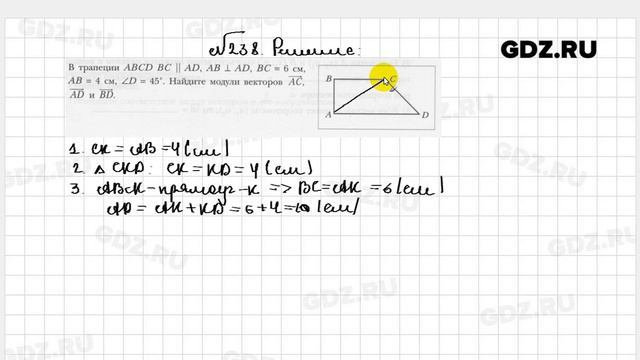 №238. Решение:
GDZ.RU
В трапеции ABCD BC || AD, AB ⊥ AD, BC = 6 см,
AB = 4 см, ∠D = 45°. Найдите модули векторов AC,
AD и BD.
B C
A D
1. CK = AB = 4 (см)
2. △ CKD: CK = KD = 4 (см)
3. ABCK - прямоуг-к => BC = AK = 6 (см)
AD = AK + KD = 6 + 4 = 10 (см)
GDZ.RU
GDZ.RU
GDZ.RU
GDZ.RU